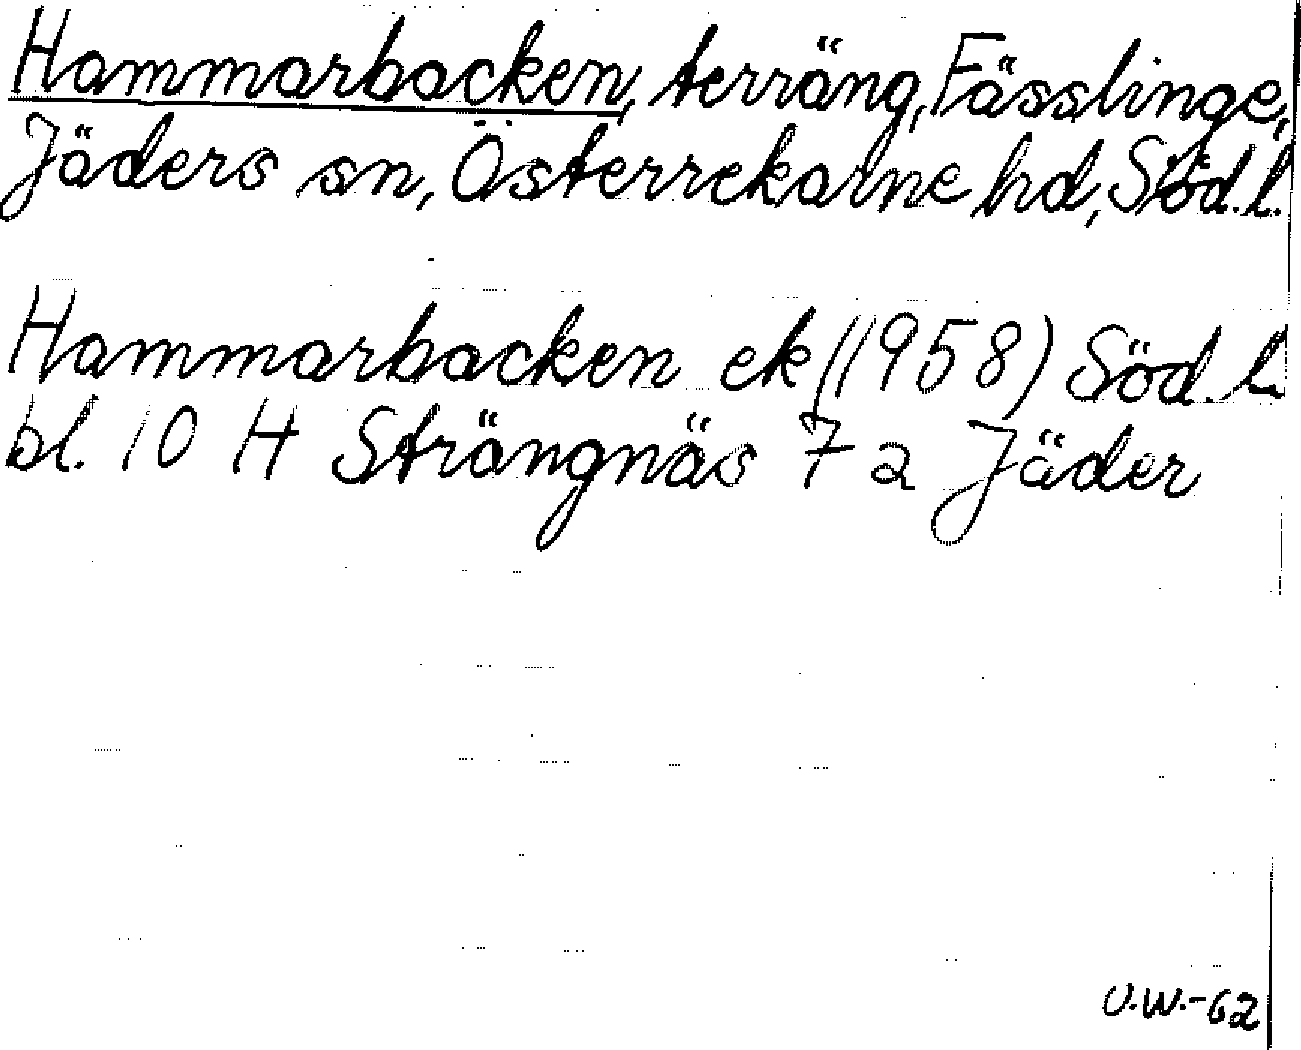 Hammarbacken, terräng, Fässlinge,
Jäders sn, Österrekarne hd, Söd. l.
Hammarbacken ek (1958) Söd. l.
bl. 10 H Strängnäs 7 a Jäder
U.W.-62